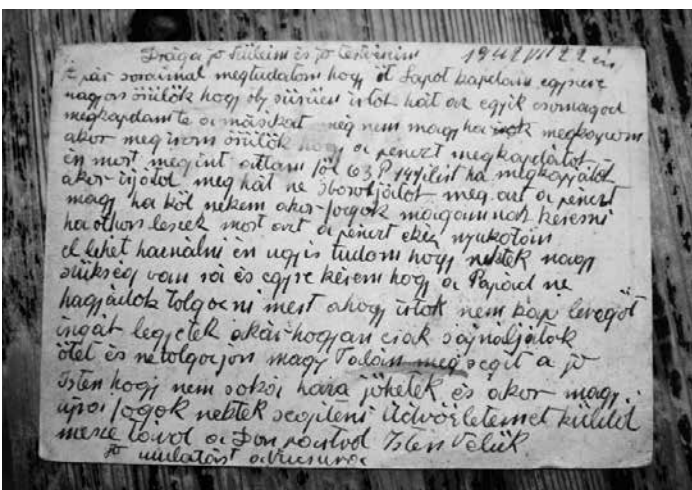 Drága jo Szüleim és jo testvéreim 1942 VII 22 én
E pár soraimal megtudatom hogy öt Lapot kaptam egyszere
nagyon örülök hogy oly sürüen irtok hát az egyik csomagod
megkaptam te a másikat még nem magy ha megkapom
akor megirom örülök hogy a pénzt megkaptátok
én most megint attam föl 63 P ha megkapjátok
akor irjátok meg hát ne spóroljátok meg azt a pénzt
magy ha köl nékem akor fogok magamnak keresni
ha othon leszek most azt a pénzt
el lehet hasnálni én ugy is tudom hogy nektek nagy
szükség van rá és egyre kérem hogy a Papád ne
hagyátok dolgozni mert ahogy irtok nem kap levegöt
ingát legyetek akár-hogyan csak sajnáljátok
ötet és ne dolgozon magy Talán megsegit a jo
Isten hogy nem soká haza jöhetek és akor magy
ujra fogok nektek segiteni üdvözletemet küldöt
mesze távol a Don Isten Velük
Jo mulatást a bucsura